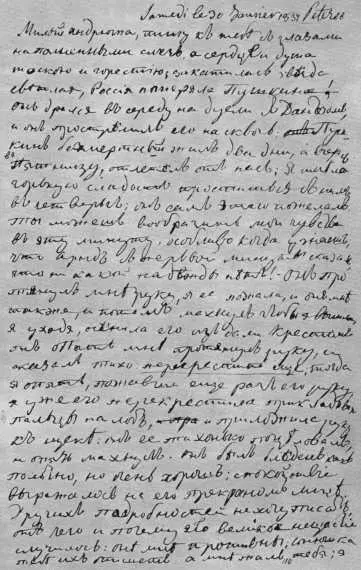 Samedi le 30 Janvier 1837 Petersb
Милый Андрюша, пишу к тебѣ с глазами
наполненными слезъ, а сердце и душа
тоскою и горестію; закатилась звѣзда
светлая, Россія потеряла Пушкина!
онъ дрался въ середу на дуели с Дантезом,
и онъ прострелилъ его насквозь. Пуш
кинъ безсмертный жилъ два дни, а вчерась
в пятницу, отлетелъ отъ насъ; я имела
горькую сладость проститься с нимъ
въ четверьгъ; онъ самъ этаго пожелалъ
ты можешь вообразить мои чувства
въ эту минуту, особливо когда узнаешь,
что Арндъ с первой минуты сказалъ
что никакой надежды нетъ! онъ про
тянулъ мнѣ руку, я ее пожала, и онъ мнѣ
также, и потомъ махнулъ чтобы я вышла
я уходя, осенила его издали крестомъ
онъ опять мнѣ протянулъ руку, и
сказалъ тихо перекрестите еще, тогда
я опять, пожавши еще разъ его руку
я уже его перекрестила прикладывая
пальцы на лобъ, и приложила руку
къ щекѣ: онъ ее тихонько поцеловалъ
и опять махнулъ. онъ былъ бледенъ какъ
полотно, но очень хорошъ; спокойствіе
выражалось на его прекрасномъ лицѣ.
Другихъ подробностей не хочу писать
отъ чего и почему это великое несчастье
случилось: они мнѣ противны; Сонюшка
тебѣ ихъ опишетъ а мнѣ жаль тебя; я